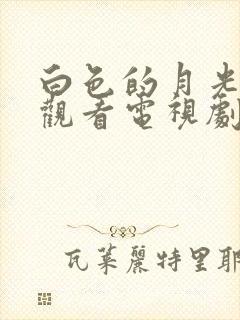 白色的月光
觀看電視劇
瓦萊麗特里耶